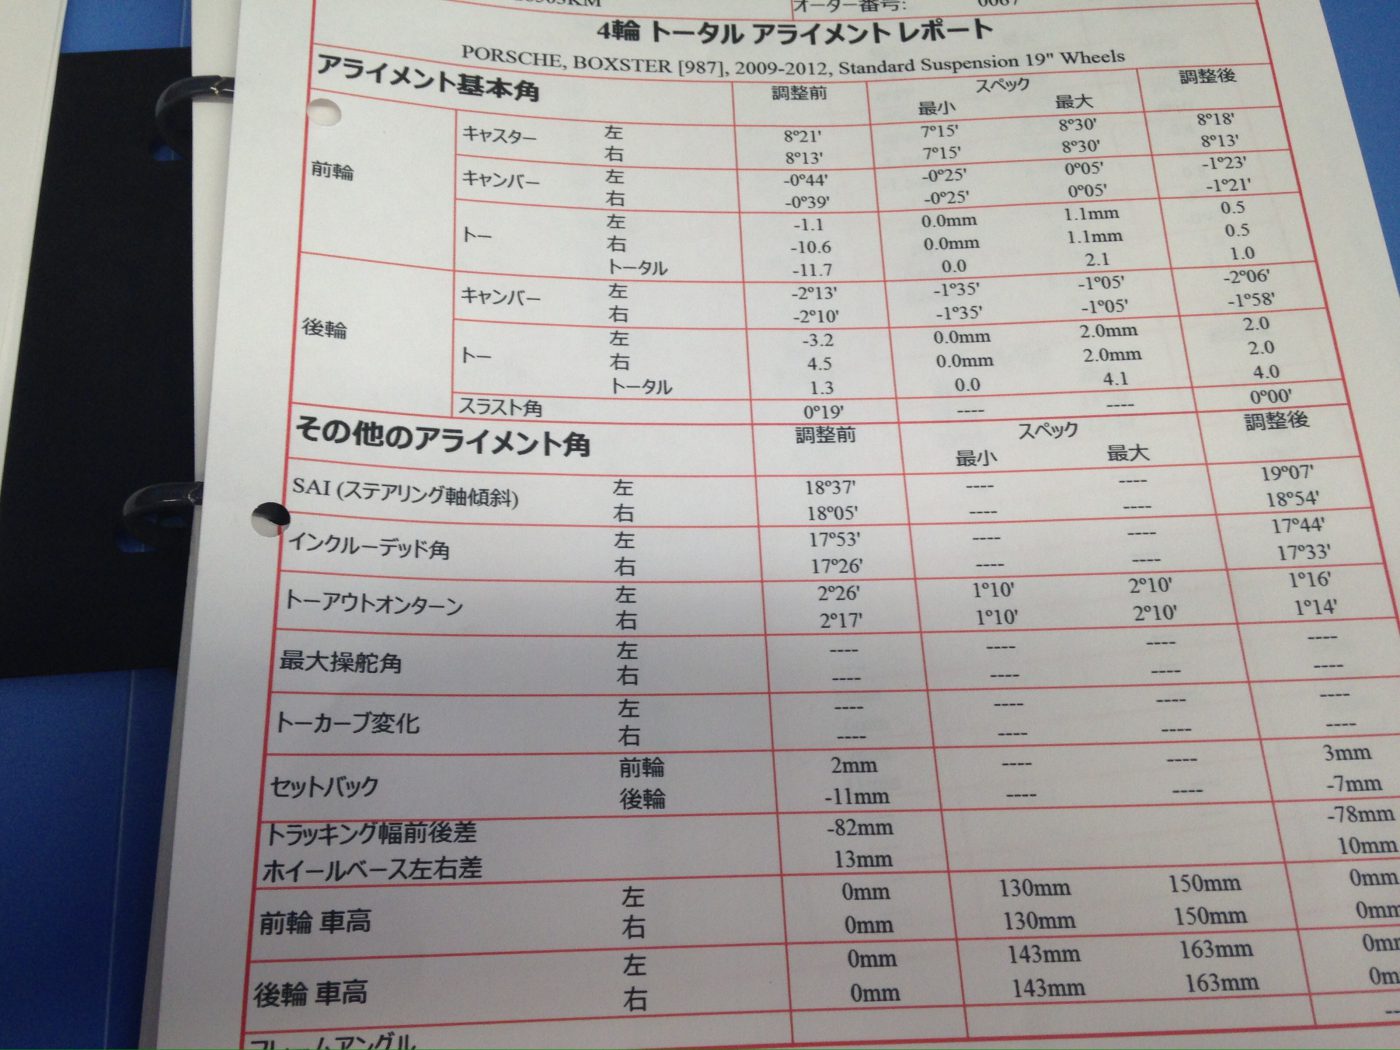 オーダー番号:
4輪 トータル アライメント レポート
PORSCHE, BOXSTER [987], 2009-2012, Standard Suspension 19" Wheels
アライメント基本角 調整前 スペック 調整後
最小 最大
前輪 キャスター 左 8º21' 7º15' 8º30' 8º18'
右 8º13' 7º15' 8º30' 8º13'
キャンバー 左 -0º44' -0º25' 0º05' -1º23'
右 -0º39' -0º25' 0º05' -1º21'
トー 左 -1.1 0.0mm 1.1mm 0.5
右 -10.6 0.0mm 1.1mm 0.5
トータル -11.7 0.0 2.1 1.0
後輪 キャンバー 左 -2º13' -1º35' -1º05' -2º06'
右 -2º10' -1º35' -1º05' -1º58'
トー 左 -3.2 0.0mm 2.0mm 2.0
右 4.5 0.0mm 2.0mm 2.0
トータル 1.3 0.0 4.1 4.0
スラスト角 0º19' ---- ---- 0º00'
その他のアライメント角 調整前 スペック 調整後
最小 最大
SAI (ステアリング軸傾斜) 左 18º37' ---- ---- 19º07'
右 18º05' ---- ---- 18º54'
インクルーデッド角 左 17º53' ---- ---- 17º44'
右 17º26' ---- ---- 17º33'
トーアウトオンターン 左 2º26' 1º10' 2º10' 1º16'
右 2º17' 1º10' 2º10' 1º14'
最大操舵角 左 ---- ---- ---- ----
右 ---- ---- ---- ----
トーカーブ変化 左 ---- ---- ---- ----
右 ---- ---- ---- ----
セットバック 前輪 2mm ---- ---- 3mm
後輪 -11mm ---- ---- -7mm
トラッキング幅前後差 -82mm -78mm
ホイールベース左右差 13mm 10mm
前輪 車高 左 0mm 130mm 150mm 0mm
右 0mm 130mm 150mm 0mm
後輪 車高 左 0mm 143mm 163mm 0m
右 0mm 143mm 163mm 0m
フレームアングル --